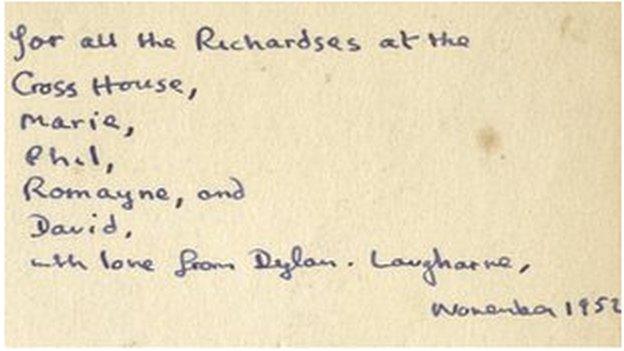 for all the Richardses at the
Cross House,
Marie,
Phil,
Romayne, and
David,
with love from Dylan. Laugharne,
November 1952